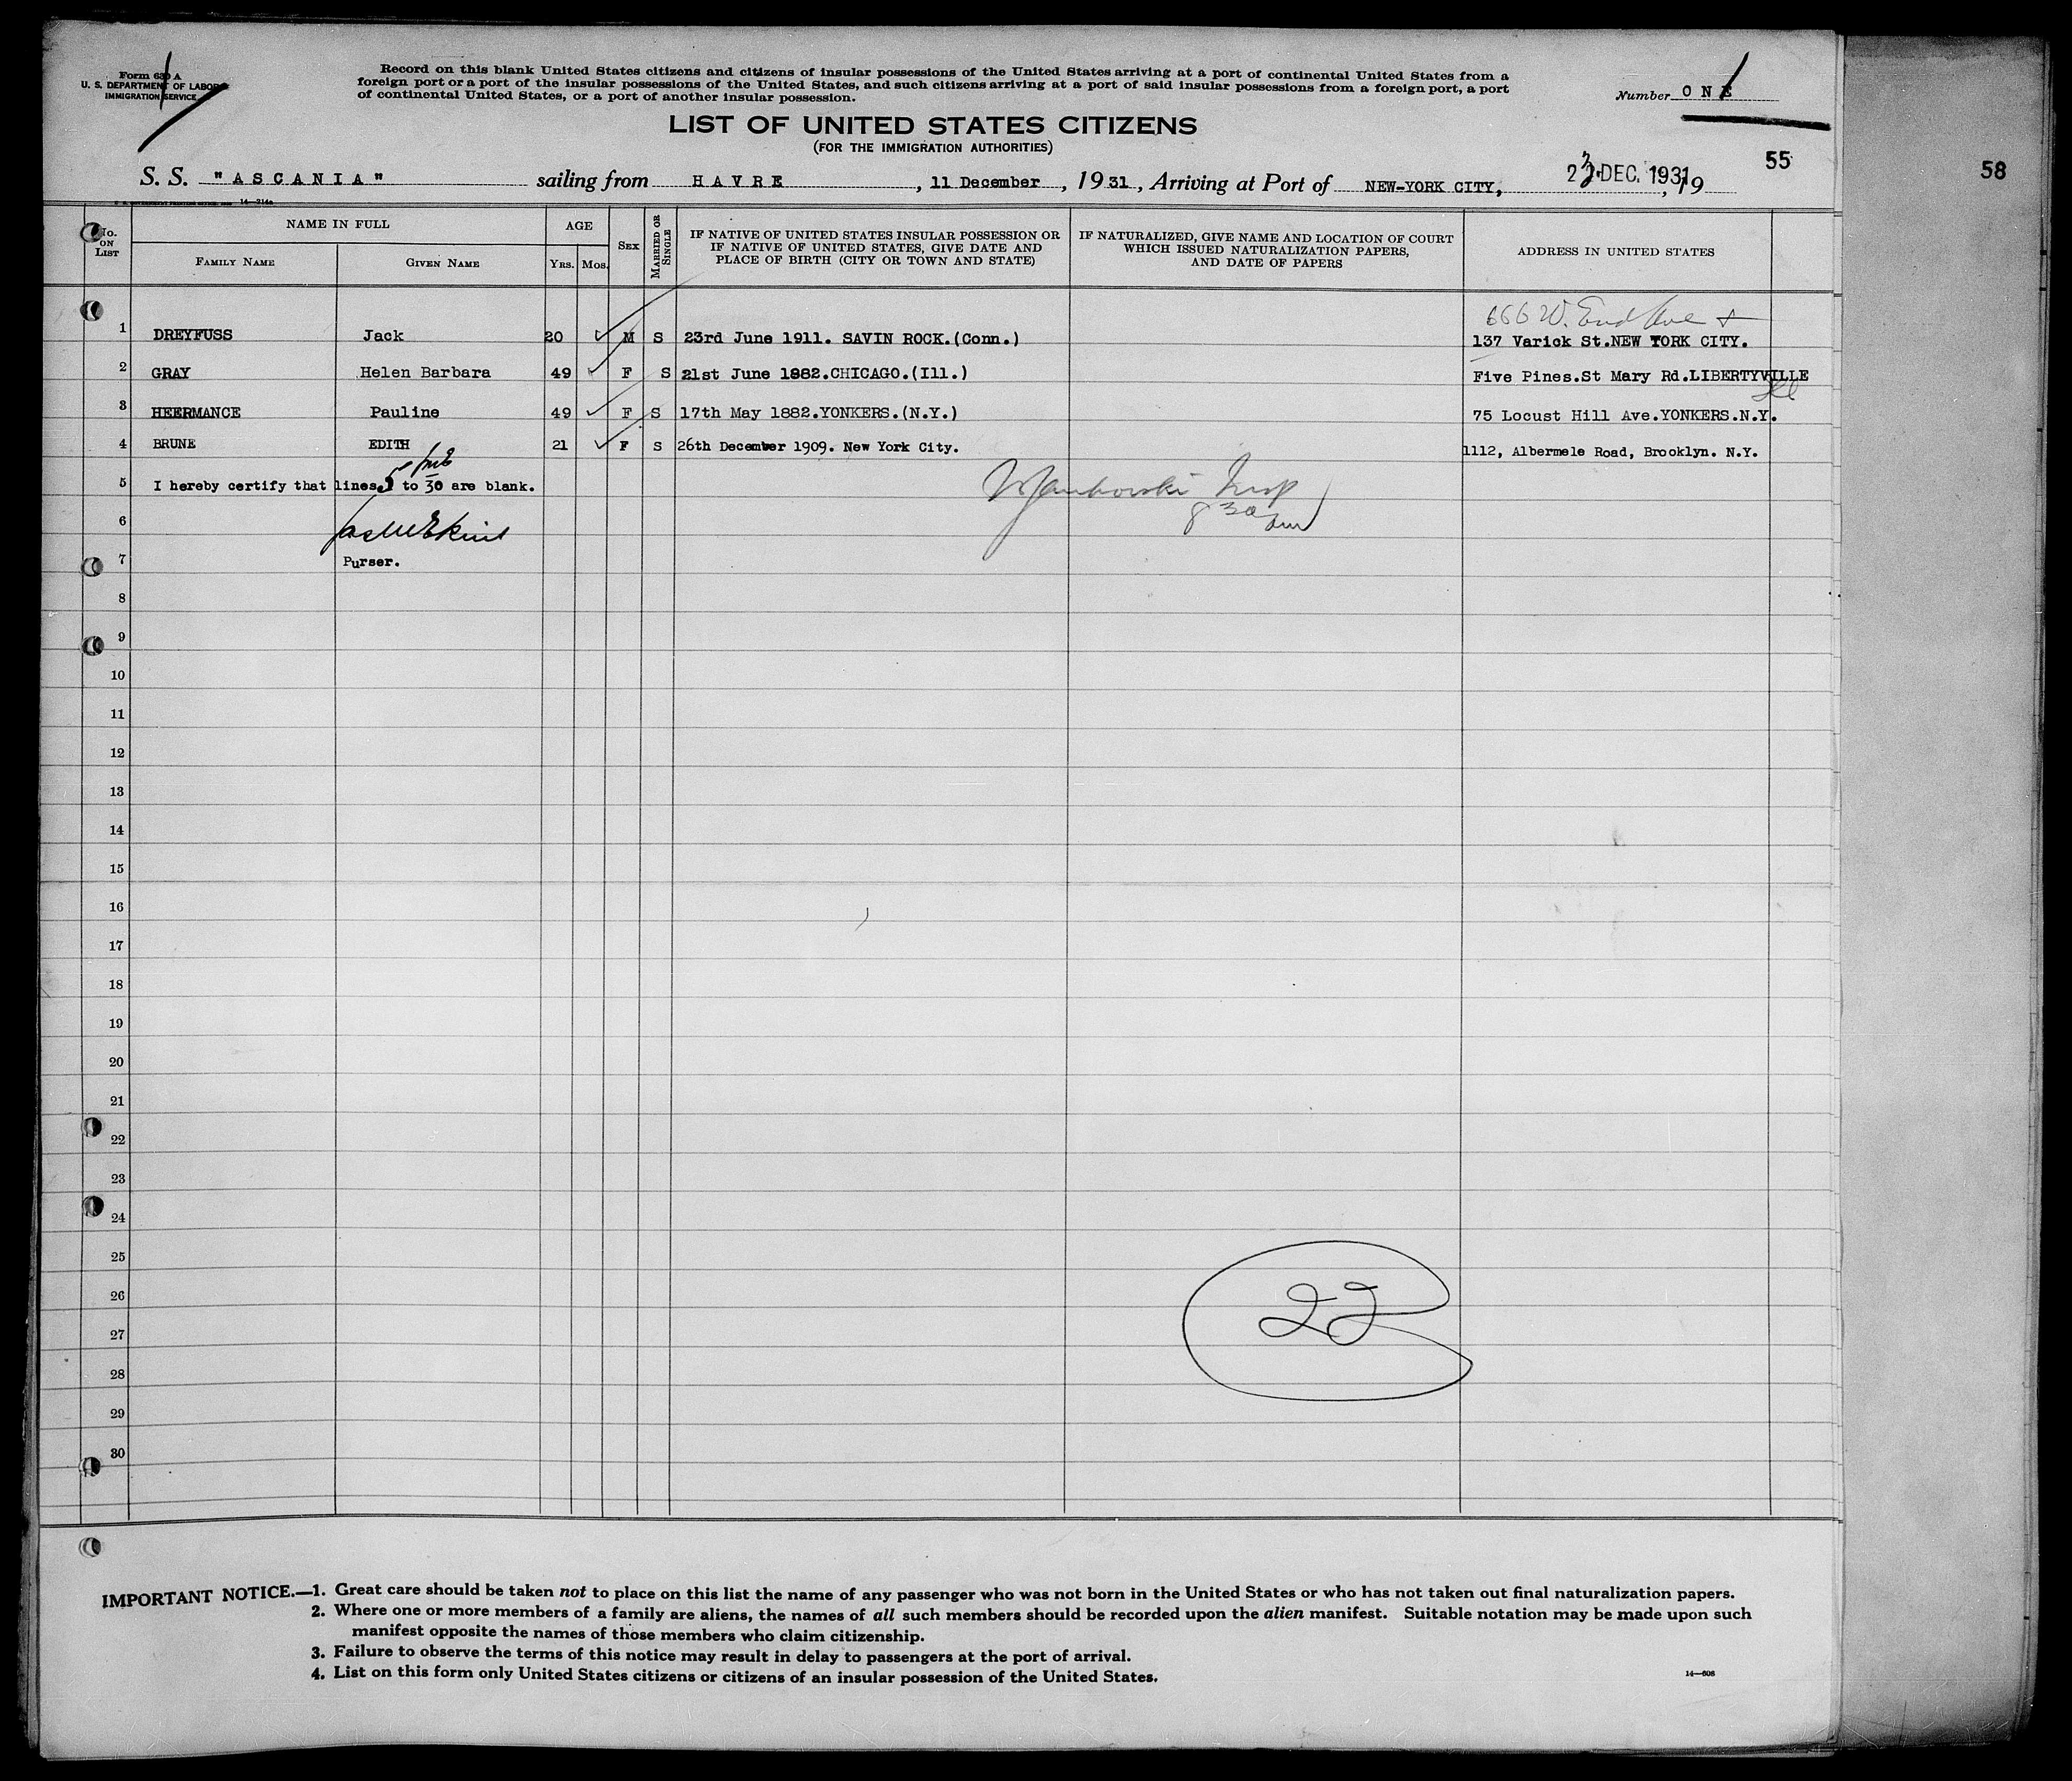 Form 630 A
U. S. DEPARTMENT OF LABOR
IMMIGRATION SERVICE
Record on this blank United States citizens and citizens of insular possessions of the United States arriving at a port of continental United States from a
foreign port or a port of the insular possessions of the United States, and such citizens arriving at a port of said insular possessions from a foreign port, a port
of continental United States, or a port of another insular possession.
Number ONE
LIST OF UNITED STATES CITIZENS
(FOR THE IMMIGRATION AUTHORITIES)
55
58
S. S. "ASCANIA" sailing from HAVRE, 11 December, 1931, Arriving at Port of NEW-YORK CITY, 23 DEC. 1931, 19
No. ON LIST
NAME IN FULL
FAMILY NAME
GIVEN NAME
AGE
YRS.
MOS.
SEX
MARRIED OR SINGLE
IF NATIVE OF UNITED STATES INSULAR POSSESSION OR
IF NATIVE OF UNITED STATES, GIVE DATE AND
PLACE OF BIRTH (CITY OR TOWN AND STATE)
IF NATURALIZED, GIVE NAME AND LOCATION OF COURT
WHICH ISSUED NATURALIZATION PAPERS,
AND DATE OF PAPERS
ADDRESS IN UNITED STATES
666 W. End Ave
1 DREYFUSS Jack 20 M S 23rd June 1911. SAVIN ROCK.(Conn.) 137 Varick St.NEW YORK CITY.
2 GRAY Helen Barbara 49 F S 21st June 1882.CHICAGO.(Ill.) Five Pines.St Mary Rd.LIBERTYVILLE
Ill
3 HEERMANCE Pauline 49 F S 17th May 1882.YONKERS.(N.Y.) 75 Locust Hill Ave.YONKERS.N.Y.
4 BRUNE EDITH 21 F S 26th December 1909. New York City. 1112, Albermele Road, Brooklyn. N.Y.
5 I hereby certify that lines 5 to 30 are blank.
Insp
8 30 am
6
7 Purser.
8
9
10
11
12
13
14
15
16
17
18
19
20
21
22
23
24
25
26
22
27
28
29
30
IMPORTANT NOTICE.—1. Great care should be taken not to place on this list the name of any passenger who was not born in the United States or who has not taken out final naturalization papers.
2. Where one or more members of a family are aliens, the names of all such members should be recorded upon the alien manifest. Suitable notation may be made upon such
manifest opposite the names of those members who claim citizenship.
3. Failure to observe the terms of this notice may result in delay to passengers at the port of arrival.
4. List on this form only United States citizens or citizens of an insular possession of the United States.
14—608